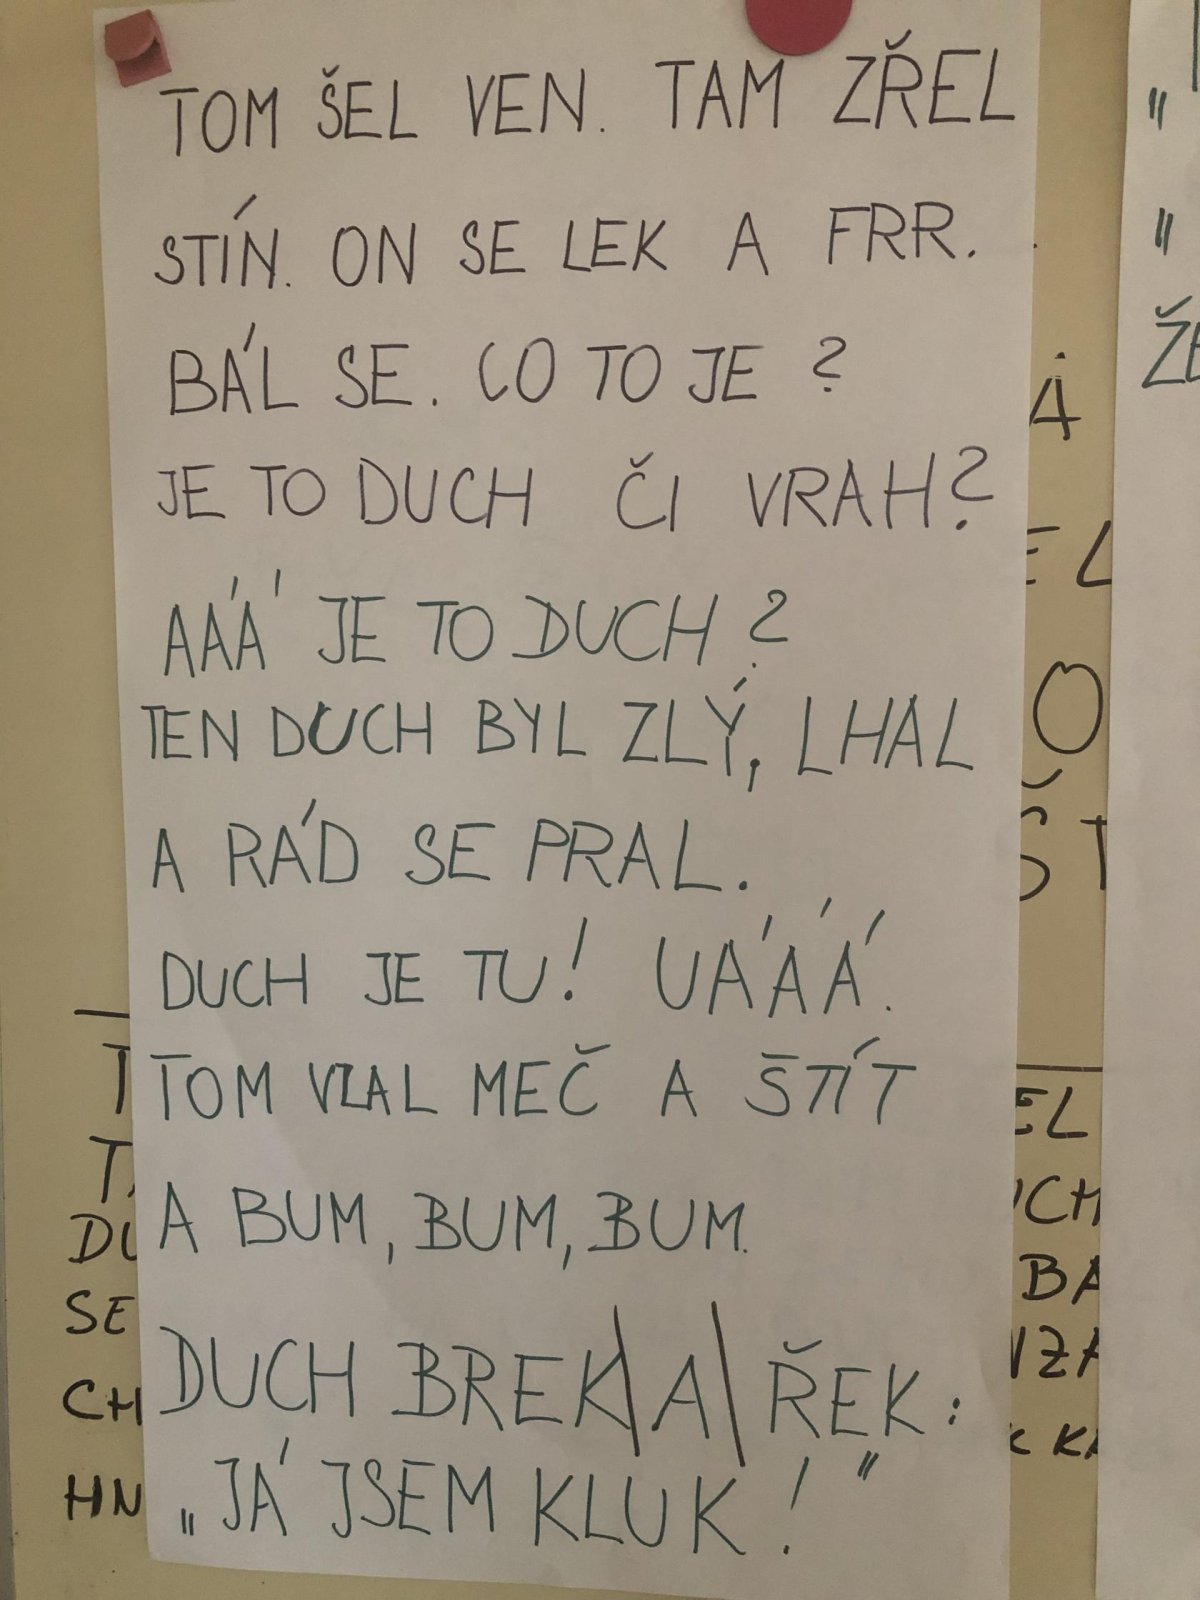 TOM ŠEL VEN. TAM ZŘEL
STÍN. ON SE LEK A FRR.
BÁL SE. CO TO JE ?
JE TO DUCH ČI VRAH?
AÁÁ JE TO DUCH ?
TEN DUCH BYL ZLÝ, LHAL
A RÁD SE PRAL.
DUCH JE TU! UÁÁÁ.
TOM VZAL MEČ A ŠTÍT
A BUM, BUM, BUM.
DUCH BREK|A| ŘEK:
„JÁ JSEM KLUK!"